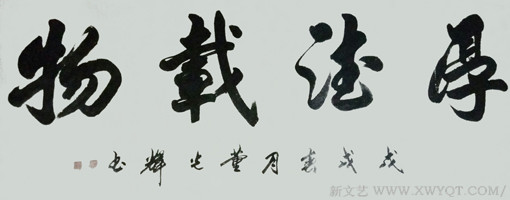 厚德載物
戊戌春月董光輝书
新文艺 WWW.XWYQT.COM/